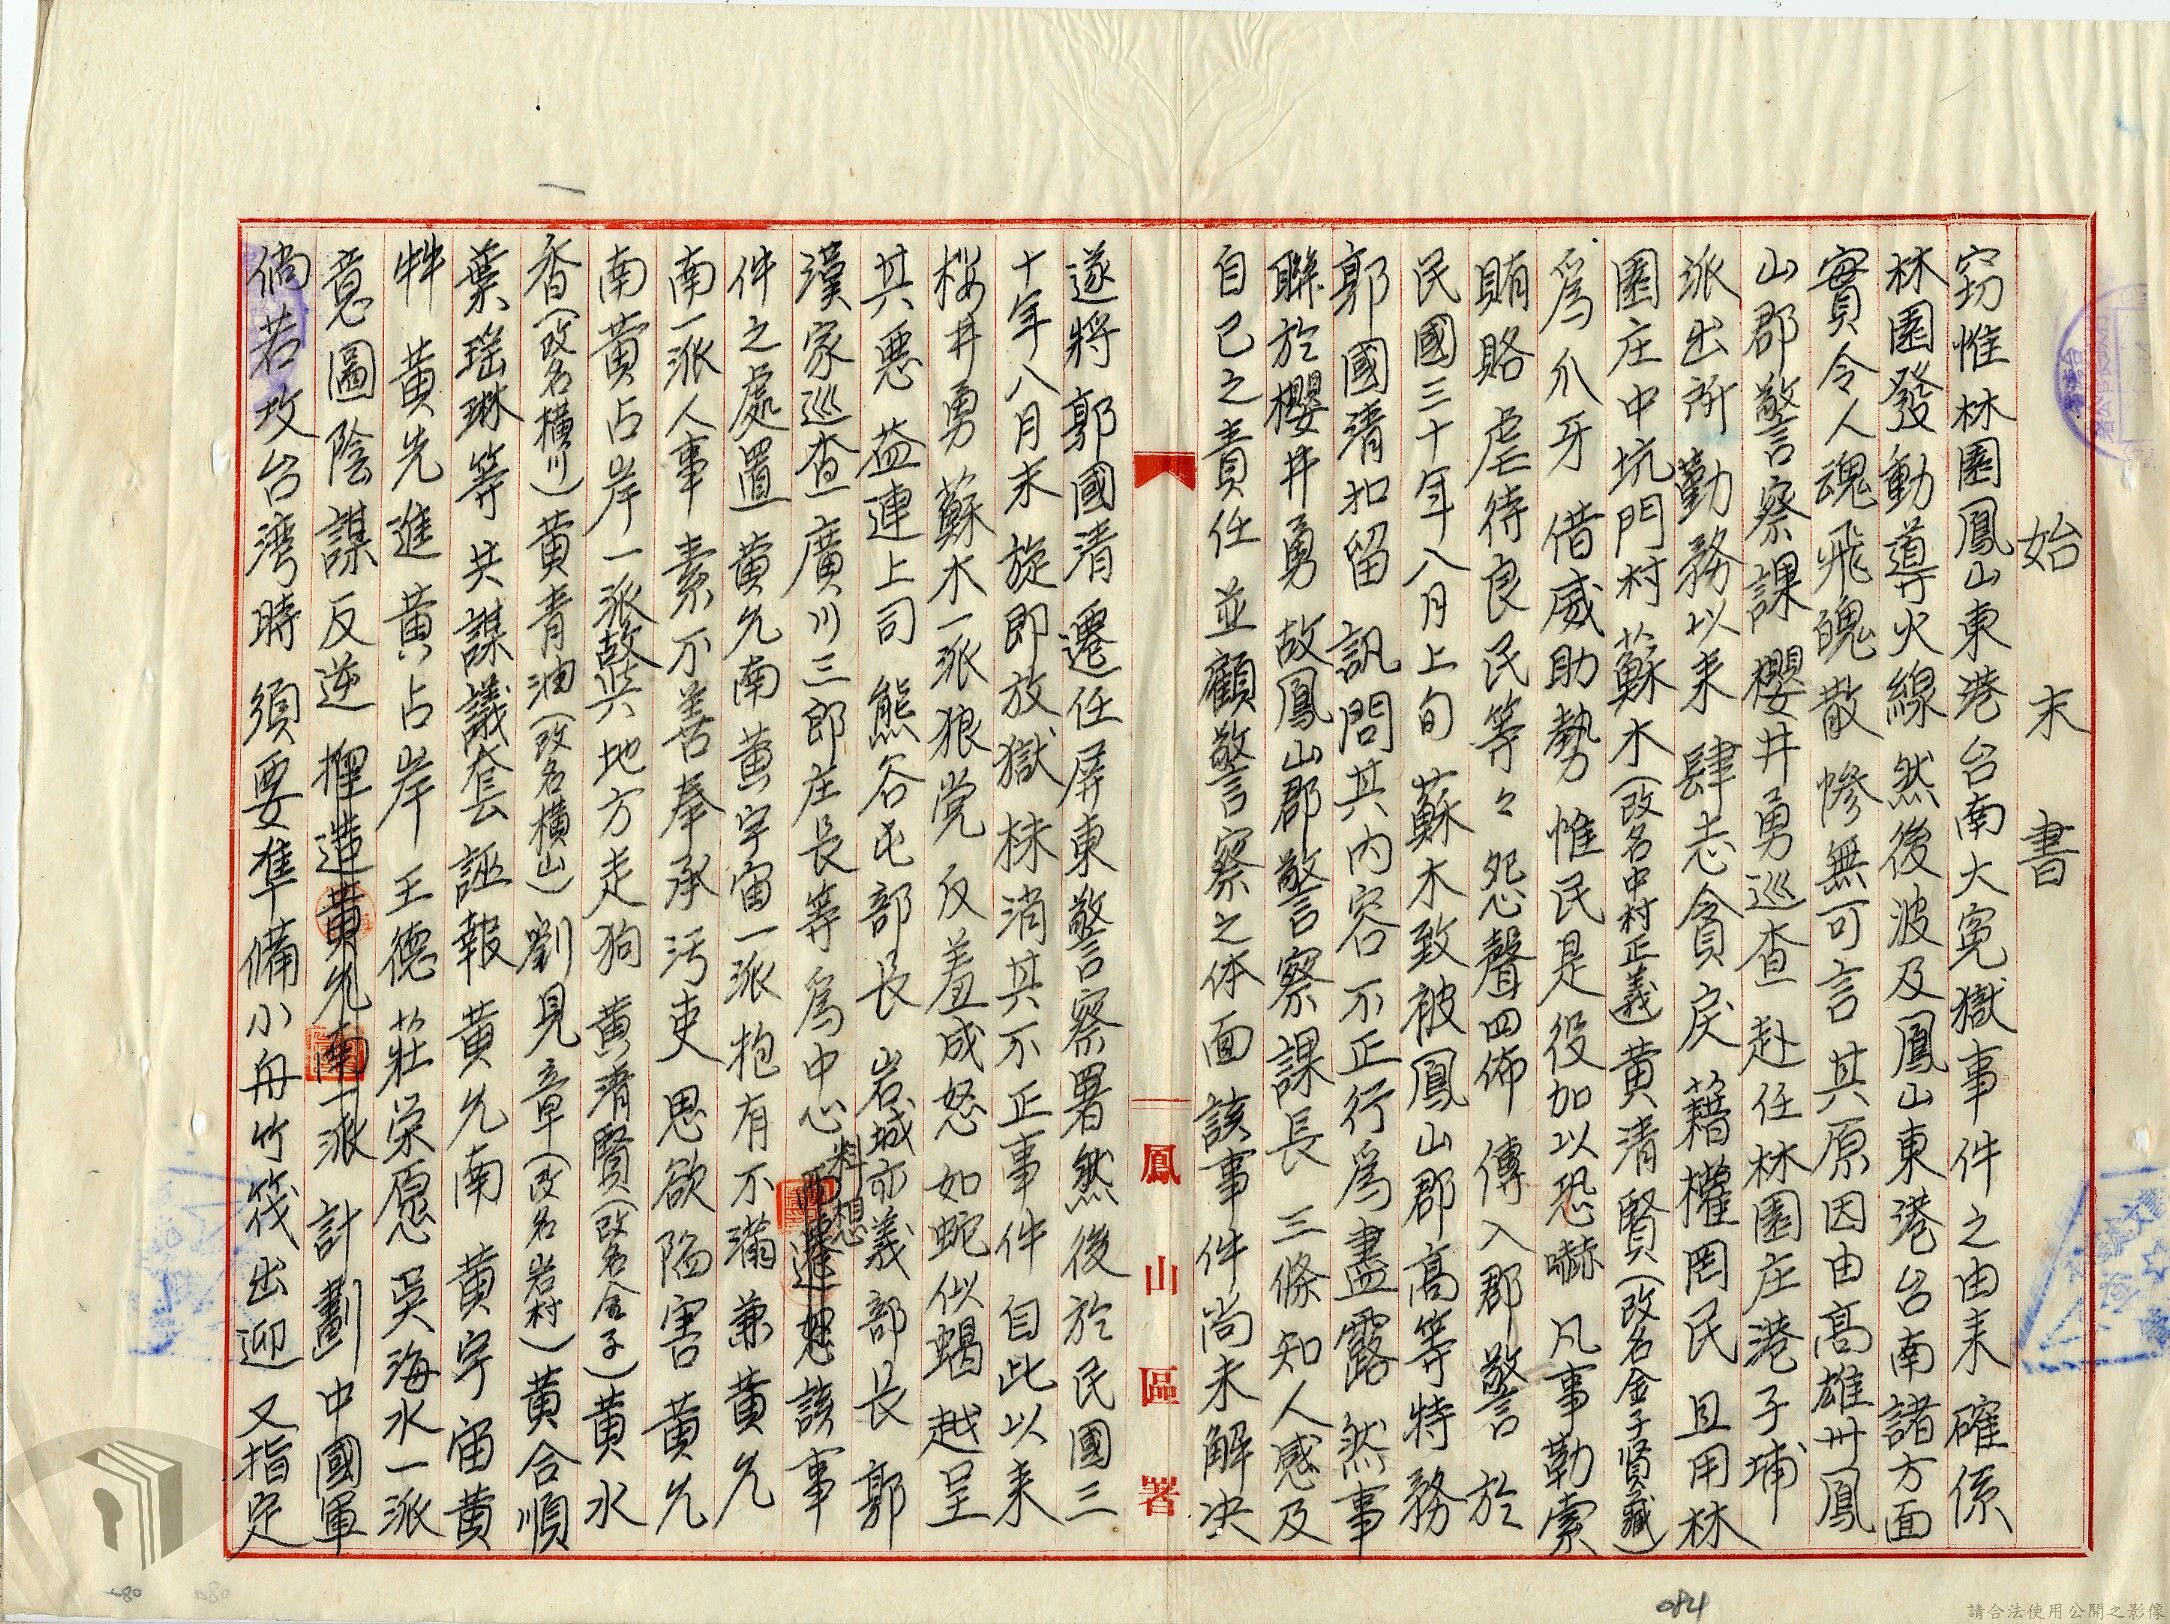 始末書
窃惟林園鳳山東港台南大冤獄事件之由来確係
林園發動導火線然後波及鳳山東港台南諸方面
實令人魂飛魄散慘無可言其原因由高雄州鳳
山郡警察課櫻井勇巡查赴任林園庄港子埔
派出所勤務以来肆志貪戾藉權罔民且用林
園庄中坑門村蘇水(改名中村正義)黄清賢(改名金子賢藏)
爲爪牙借威助勢惟民是役加以恐嚇凡事勒索
賄賂虐待良民等々怨聲四佈傳入郡警於
民國三十年八月上旬蘇木致被鳳山郡高等特務
郭國清扣留訊問其内容不正行爲盡露然事
聯於櫻井勇故鳳山郡警察課長三條知人感及
自已之責任並顧警察之体面該事件尚未解决
鳳山區署
遂將郭國清遷任屏東警察署然後於民國三
十年八月末旋即放獄抹消其不正事件自此以来
桜井勇蘇水一派狼党反羞成怒如蛇似蝎越呈
其悪益連上司熊谷屯部長岩城亦義部長郭
漢家巡查廣川三郎庄長等爲中心料想該事
件之處置黄允南黄宇宙一派抱有不滿兼黄允
南一派人事素不善奉承污吏思欲陷害黄允
南黄占岸一派故與地方走狗黄濟賢(改名金子)黄水
香(改名横川)黄青油(改名横山)劉見章(改名岩村)黄合順
葉瑤琳等共謀議套誣報黄允南黄宇宙黄
牪黄先進黄占岸王德莊荣愿吳海水一派
意圖陰謀反逆捏造黄允南一派計劃中國軍
倘若攻台湾時須要準備小舟竹筏出迎又指定
084
請合法使用公開之影像